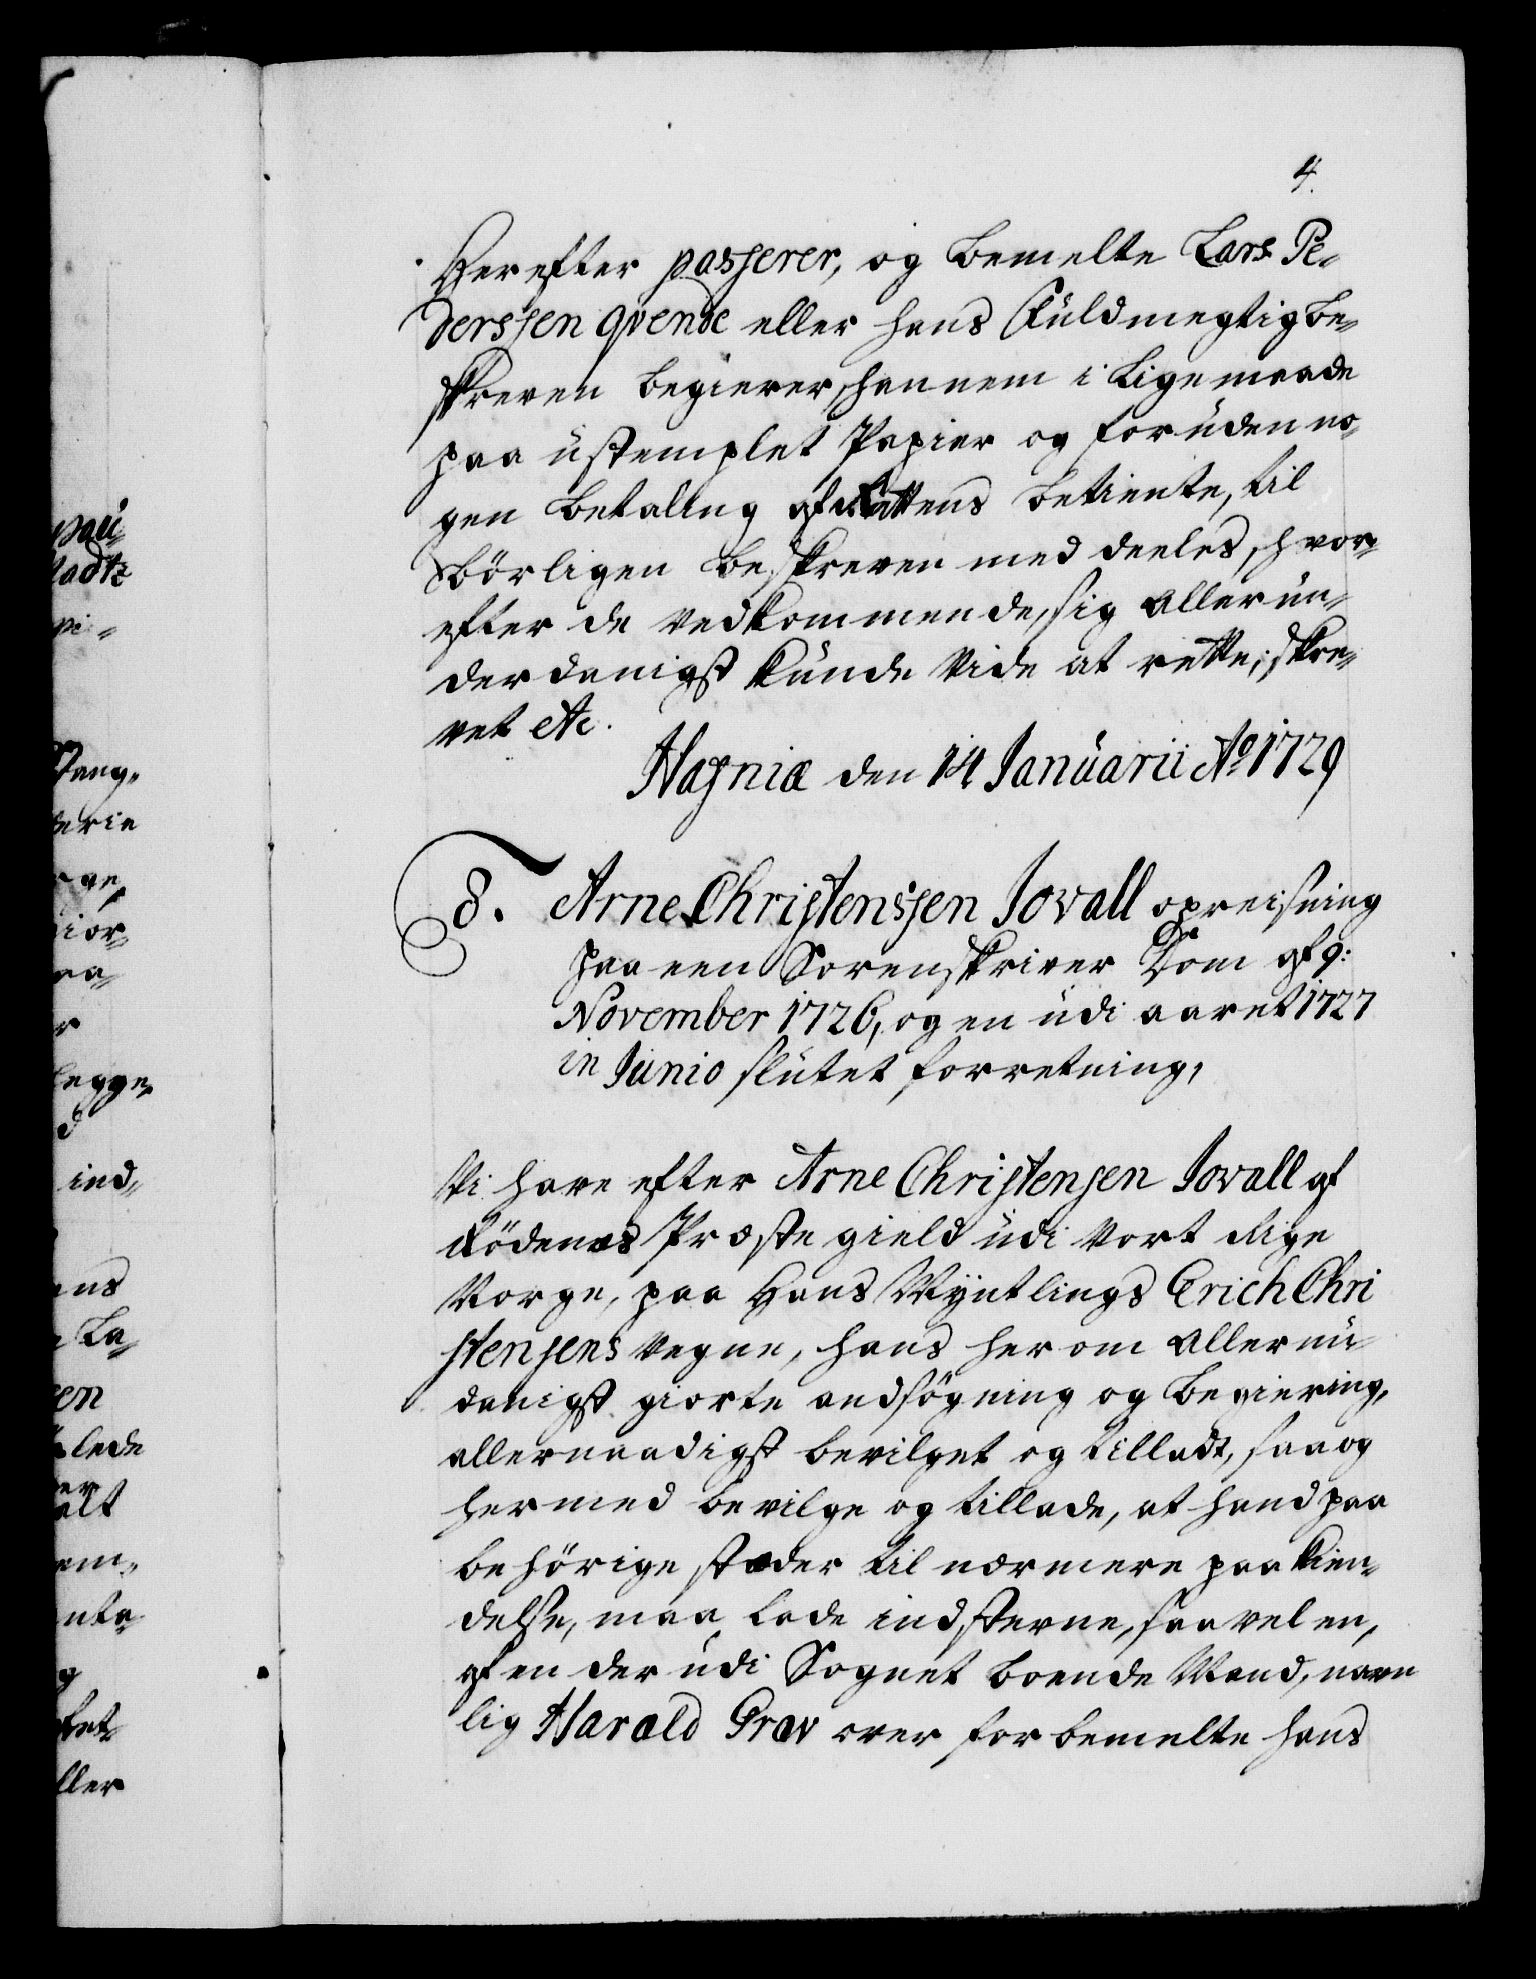 4.
Herefter passerer, og bemelte Lars Pe-
derssen Qvende eller hans Fuldmegtig be-
skreven begierer, hannem i Ligemaade
paa ustemplet Papier og foruden no-
gen betaling af Rettens betiente, til
börligen beskreven meddeeles, hvor-
efter de vedkommende, sig allerun-
derdanigst kunde vide at rette; skre-
vet etc.
Hafniæ den 14 Januarii Ao 1729
8. Arne Christenssen Jovall opreisning
paa een Sorenskriver Dom af 9:
November 1726, og en udi aaret 1727
in Junio slutet forretning,
Vi. have efter Arne Christensen Jovall af
Rödenes Præstegield udi Vort Rige
Norge, paa Hans Myntlings Erich Chri
stensens vegne, hans herom allerun-
danigst giorte andsögning og begiering,
allernaadigst bevilget og tilladt, saa og
hermed bevilge og tillade, at hand paa
behörige stæder til nærmere paakien-
delse, maa lade indstevne, saavel en,
af en der udi Sognet boende Mand, navn
lig Harald Græv over forbemelte hans
pau-
ladt
pi-
Fang-
terie
r ge,
ior-
aa-
r
legge,
d
ind-
ens
La-
en
lede
er
alt
em-
nte-
g
tet-
ller